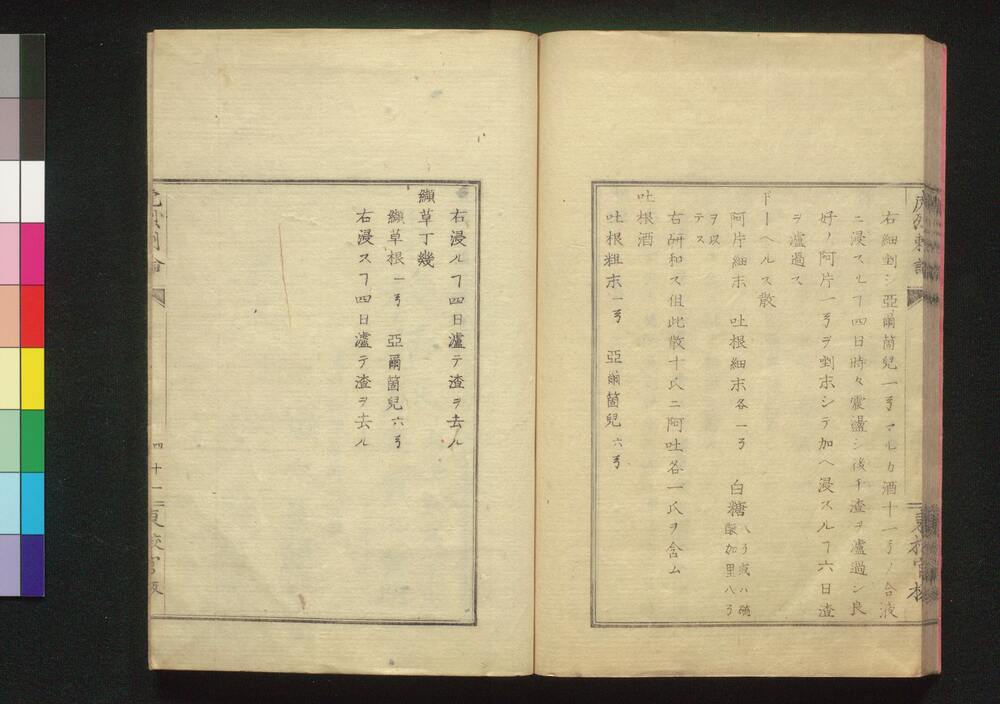 右細剉シ亞爾箇兒一ゟマルカ酒十一ゟノ合液
ニ浸スルヿ四日時々震盪シ後チ渣ヲ濾過シ良
好ノ阿片一ゟヲ剉末シテ加ヘ浸スルヿ六日渣
ヲ濾過ス
ドーヘルス散
阿片細末 吐根細末各一ゟ 白糖八ゟ或ハ硫酸加里八ゟ
ヲ以テス
右研和ス但此散十氏ニ阿吐各一氏ヲ含ム
吐根酒
吐根粗末一ゟ 亞爾箇兒六ゟ
右浸スルヿ四日濾テ渣ヲ去ル
纈草丁幾
纈草根一ゟ 亞爾箇兒六ゟ
右浸スヿ四日濾テ渣ヲ去ル
四十一
東校官版